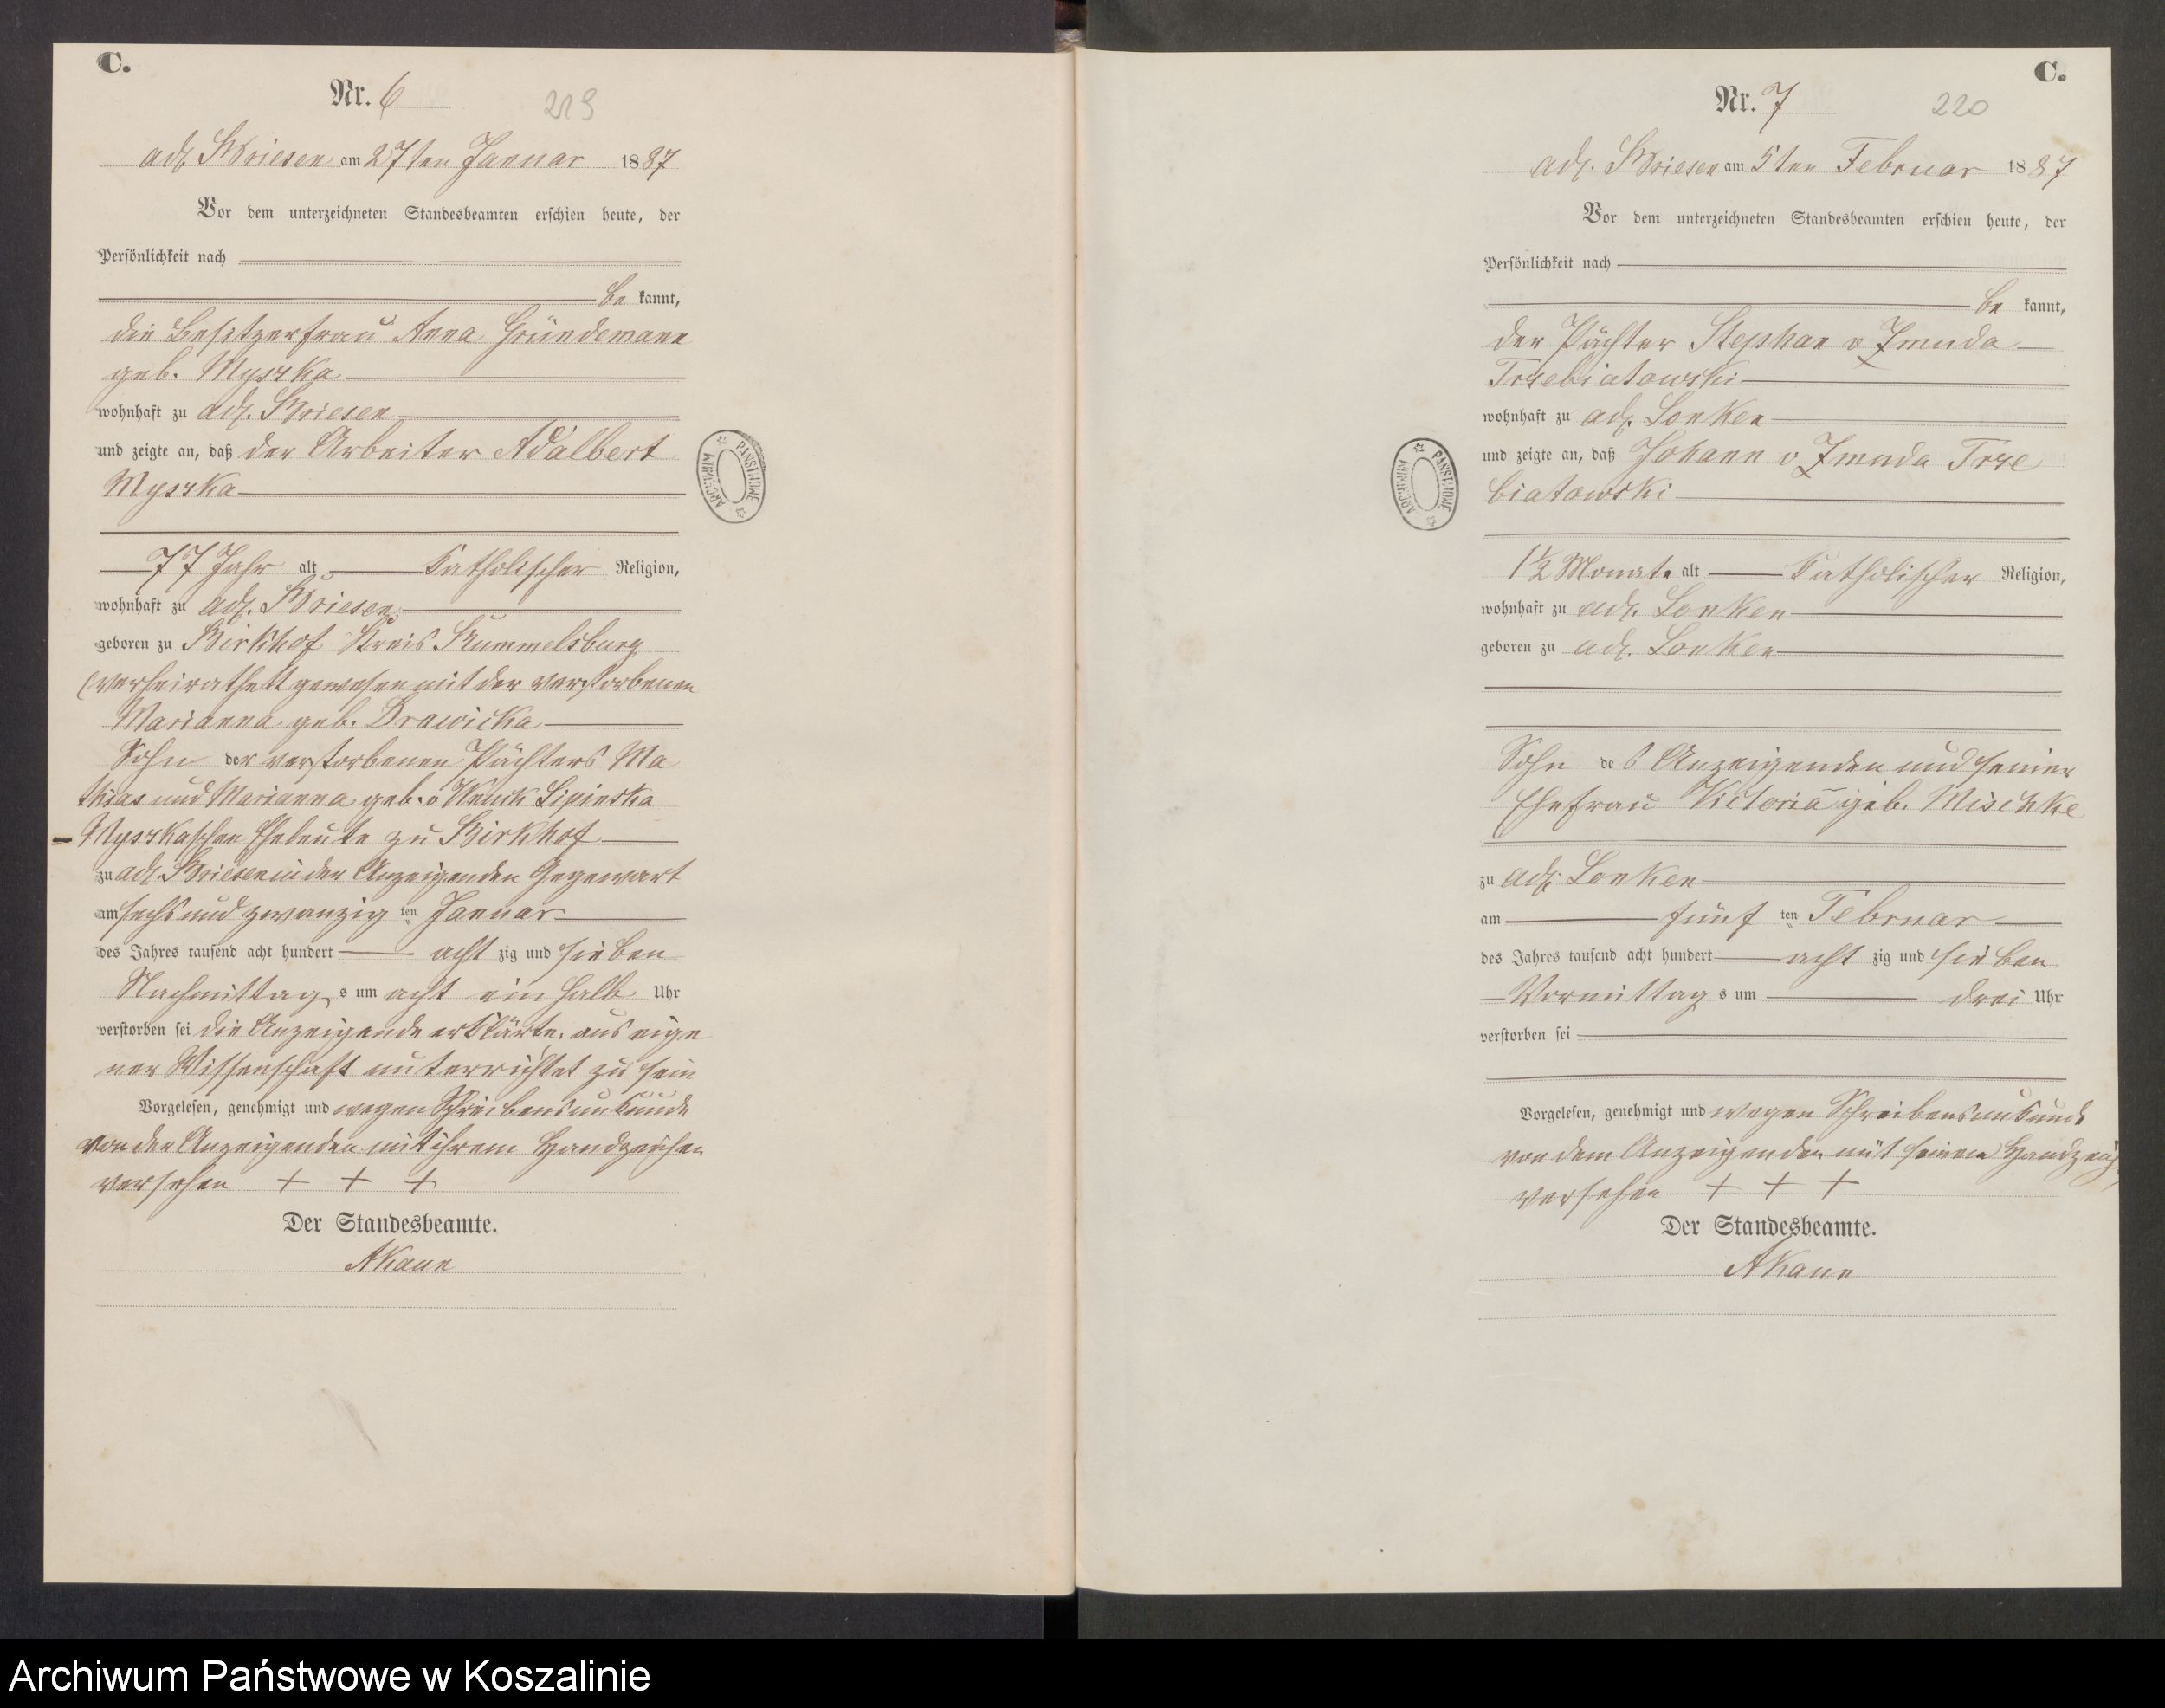 C.
Nr. 6
219
adl. Briesen am 27ten Januar 1887
Vor dem unterzeichneten Standesbeamten erschien heute, der
Persönlichkeit nach
be kannt,
die Besitzerfrau Anna Gründemann
geb. Myszka
wohnhaft zu adl. Briesen
und zeigte an, daß der Arbeiter Adalbert
Myszka
77 Jahr alt Katholischer Religion,
wohnhaft zu adl. Briesen
geboren zu Birkhof Kreis Rummelsburg
(verheirathett gewesen mit der verstorbenen
Marianna geb. Drawicka
Sohn der verstorbenen Pächters Ma
thias und Marianna geb. v Wnuk Lipinska
Myszkaschen Eheleute zu Birkhof
zu adl. Briesen in der Anzeigenden Gegenwart
am sechs und zwanzig ten Januar
des Jahres tausend acht hundert acht zig und sieben
Nachmittag s um acht ein halb Uhr
verstorben sei die Anzeigende erklärte, aus eige
ner Wissenschaft unterrichtet zu sein
Vorgelesen, genehmigt und wegen Schreibensunkunde
von der Anzeigenden mit ihrem Handzeichen
versehen + + +
Der Standesbeamte.
AKaun
ARCHIWUM PAŃSTWOWE
C.
Nr. 7
220
adl. Briesen am 5ten Februar 1887
Vor dem unterzeichneten Standesbeamten erschien heute, der
Persönlichkeit nach
be kannt,
der Pächter Stephan v Zmuda
Trzebiatowski
wohnhaft zu adl. Lonken
und zeigte an, daß Johann v Zmuda Trze
biatowski
1½ Monate alt Katholischer Religion,
wohnhaft zu adl. Lonken
geboren zu adl. Lonken
Sohn des Anzeigenden und seiner
Ehefrau Victoria geb. Mischke
zu adl. Lonken
am fünf ten Februar
des Jahres tausend acht hundert acht zig und sieben
Vormittag s um drei Uhr
verstorben sei
Vorgelesen, genehmigt und wegen Schreibensunkunde
von dem Anzeigenden mit seinem Handzeich
versehen + + +
Der Standesbeamte.
AKaun
ARCHIWUM PAŃSTWOWE
Archiwum Państwowe w Koszalinie